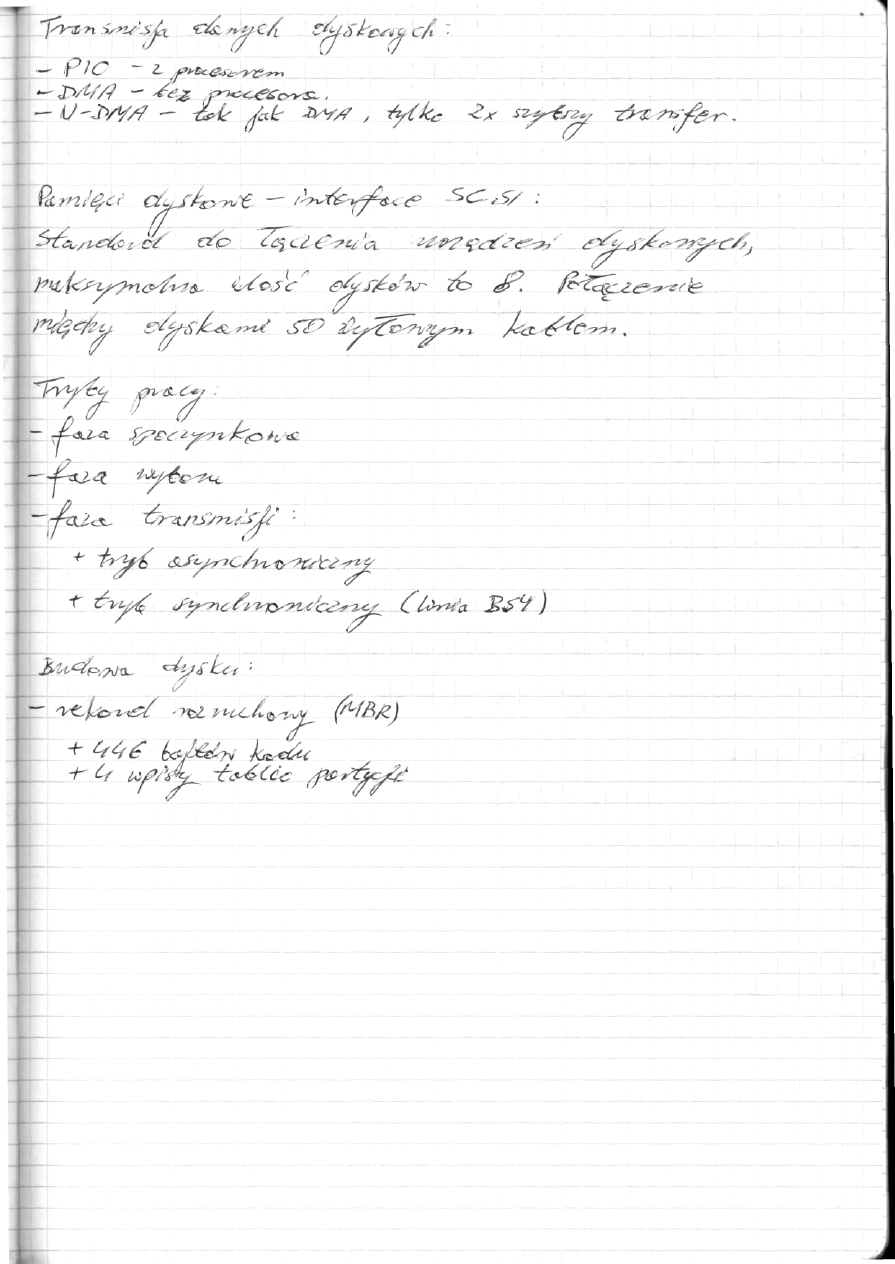 Transmisja danych dyskowych:
- PIO - z procesorem
- DMA - bez procesora.
- U-DMA - tak jak DMA, tylko 2x szybszy transfer.
Pamięci dyskowe - interface SCSI:
Standard do łączenia urządzeń dyskowych,
maksymalna ilość dysków to 8. Połączenie
między dyskami 50 żyłowym kablem.
Tryby pracy:
- faza spoczynkowa
- faza wyboru
- faza transmisji:
+ tryb asynchroniczny
+ tryb synchroniczny (linia BSY)
Budowa dysku:
- rekord rozruchowy (MBR)
+ 446 bajtów kodu
+ 4 wpisy tablic partycji